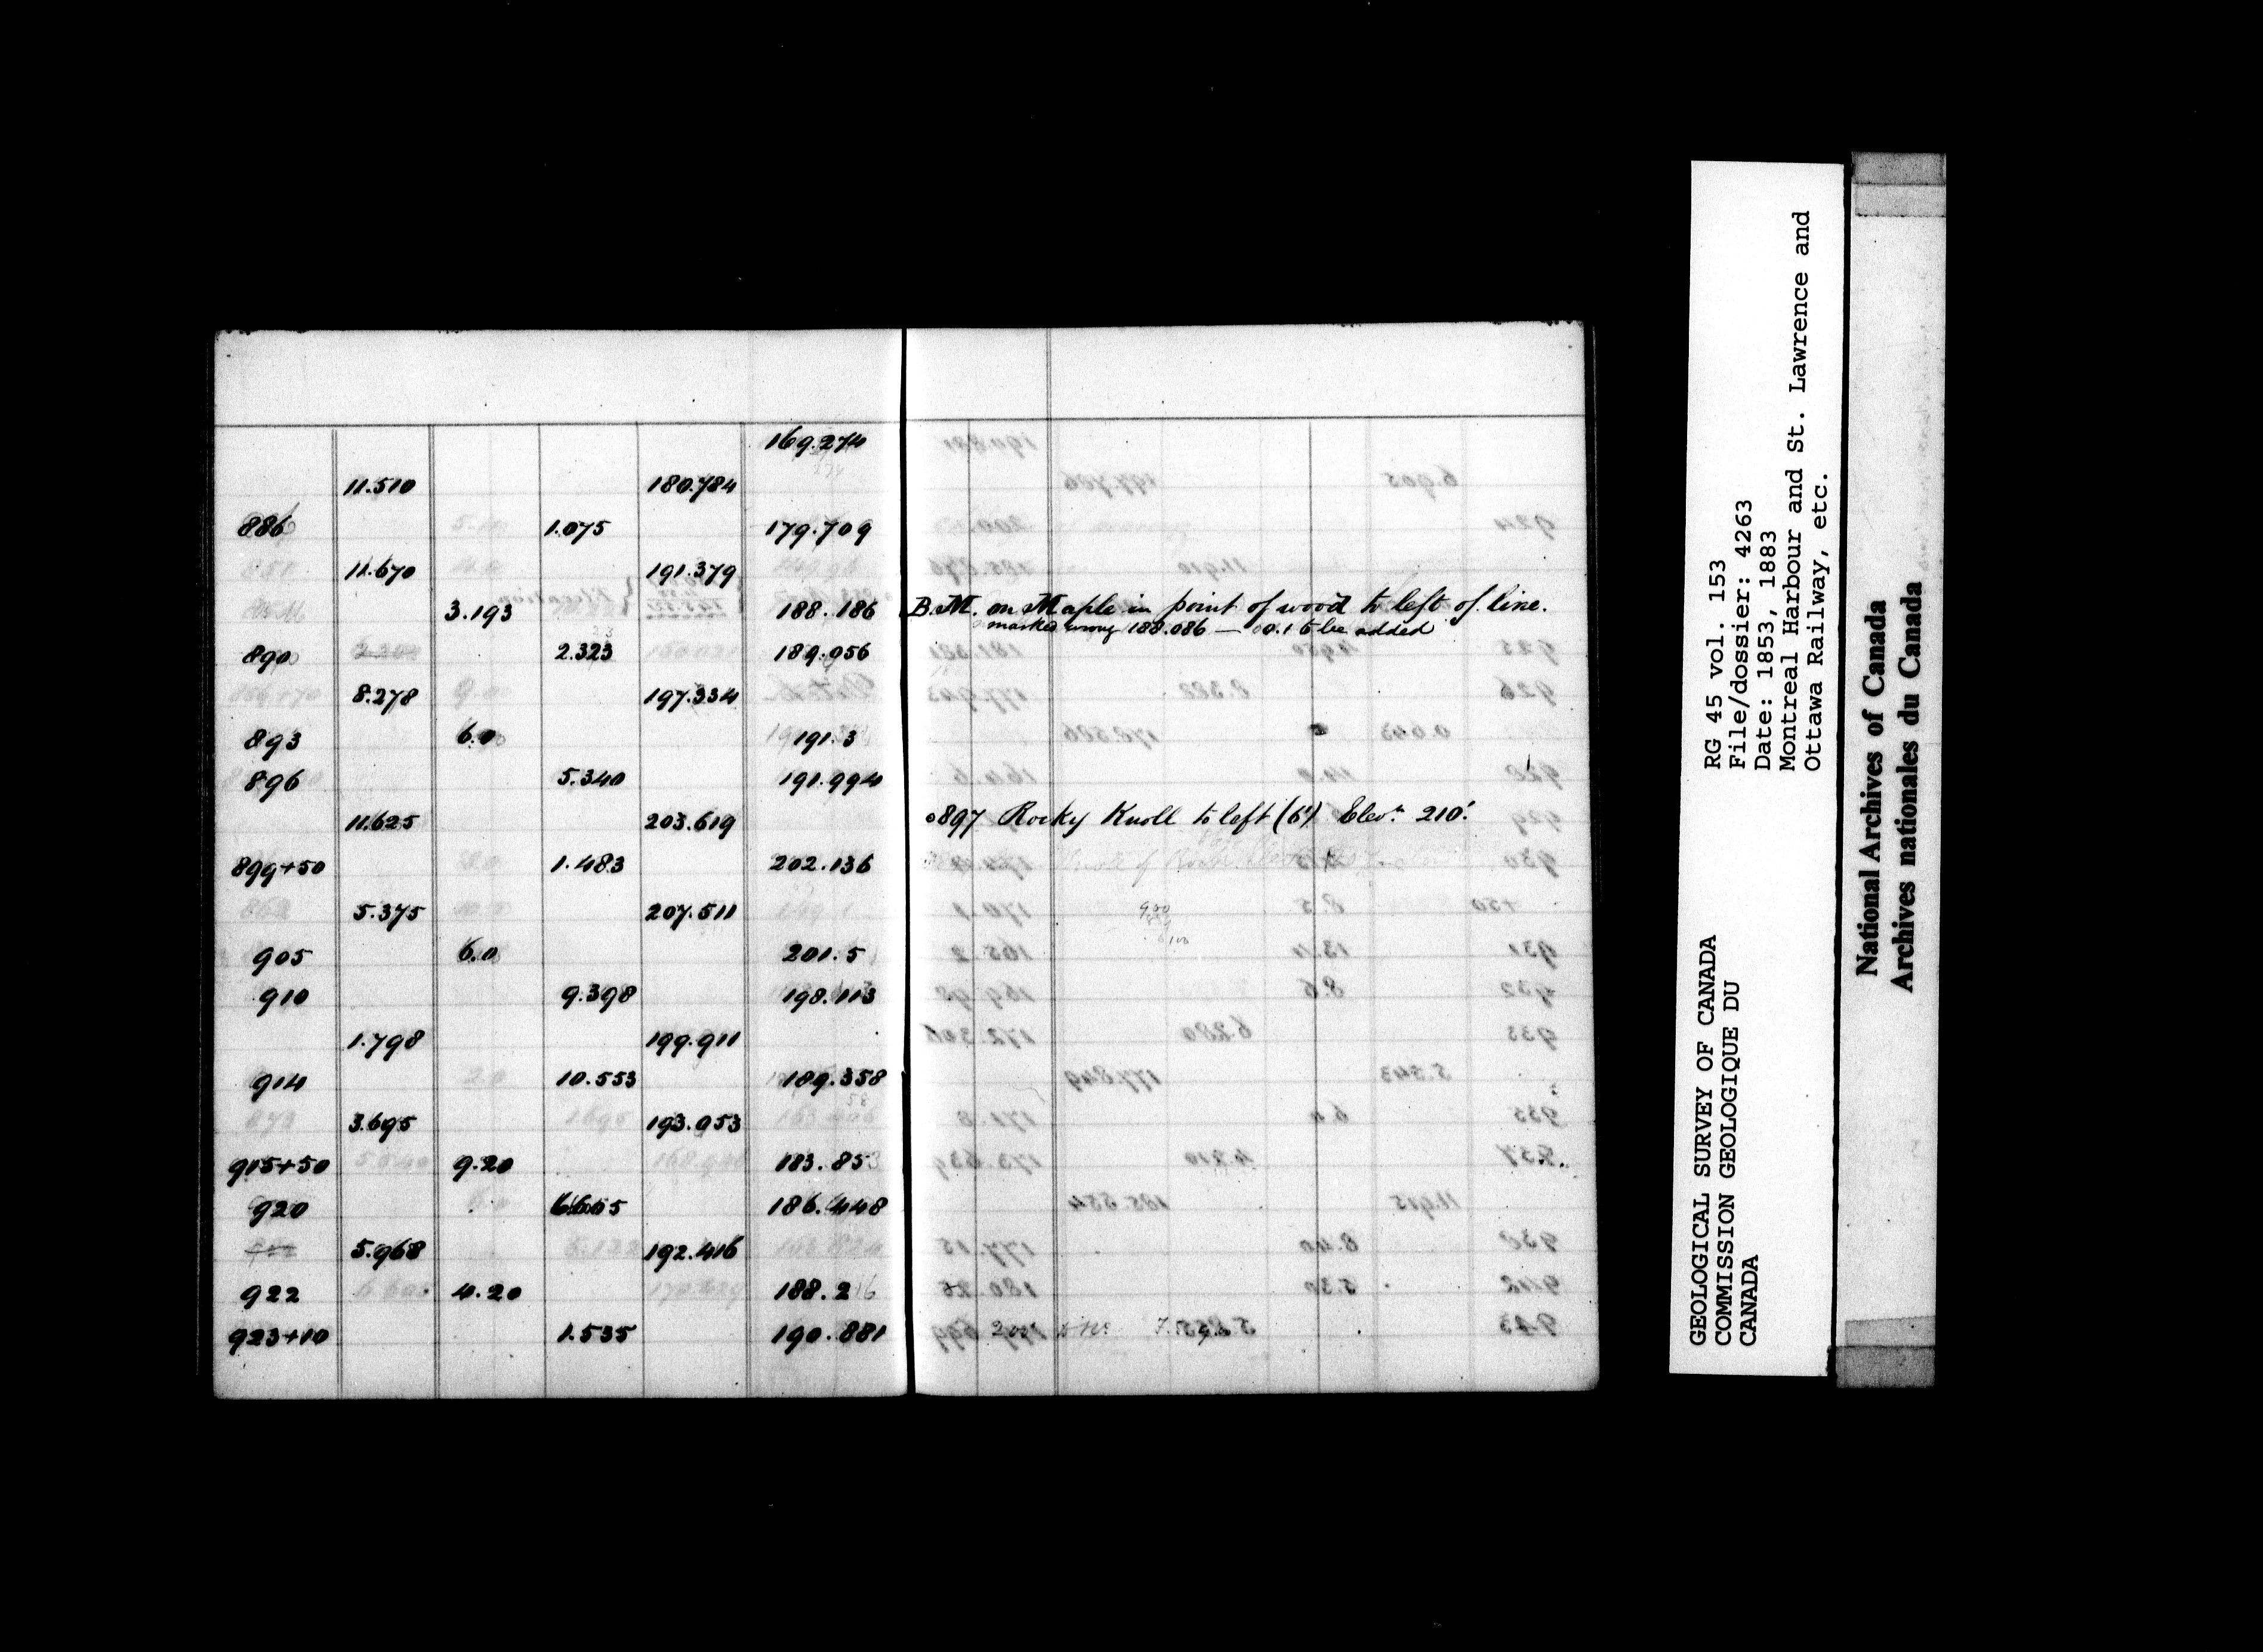 169.274
11.510 180.784
886 1.075 179.709
11.670 191.379
3.193 188.186 B.M. on Maple in point of wood to left of line.
marked wrong 188.086 — 0.1 to be added
890 2.323 189.056
8.278 197.334
893 6.0 191.3
896 5.340 191.994
11.625 203.619 0897 Rocky Knoll to left (6') Elevn. 210'.
899+50 1.483 202.136
5.375 207.511
905 6.0 201.5
910 9.398 198.113
1.798 199.911
914 10.553 189.358
3.695 193.053
915+50 9.20 183.853
920 6.605 186.448
5.968 192.416
922 4.20 188.216
923+10 1.535 190.881
GEOLOGICAL SURVEY OF CANADA
COMMISSION GEOLOGIQUE DU
CANADA
RG 45 vol. 153
File/dossier: 4263
Date: 1853, 1883
Montreal Harbour and St. Lawrence and
Ottawa Railway, etc.
National Archives of Canada
Archives nationales du Canada